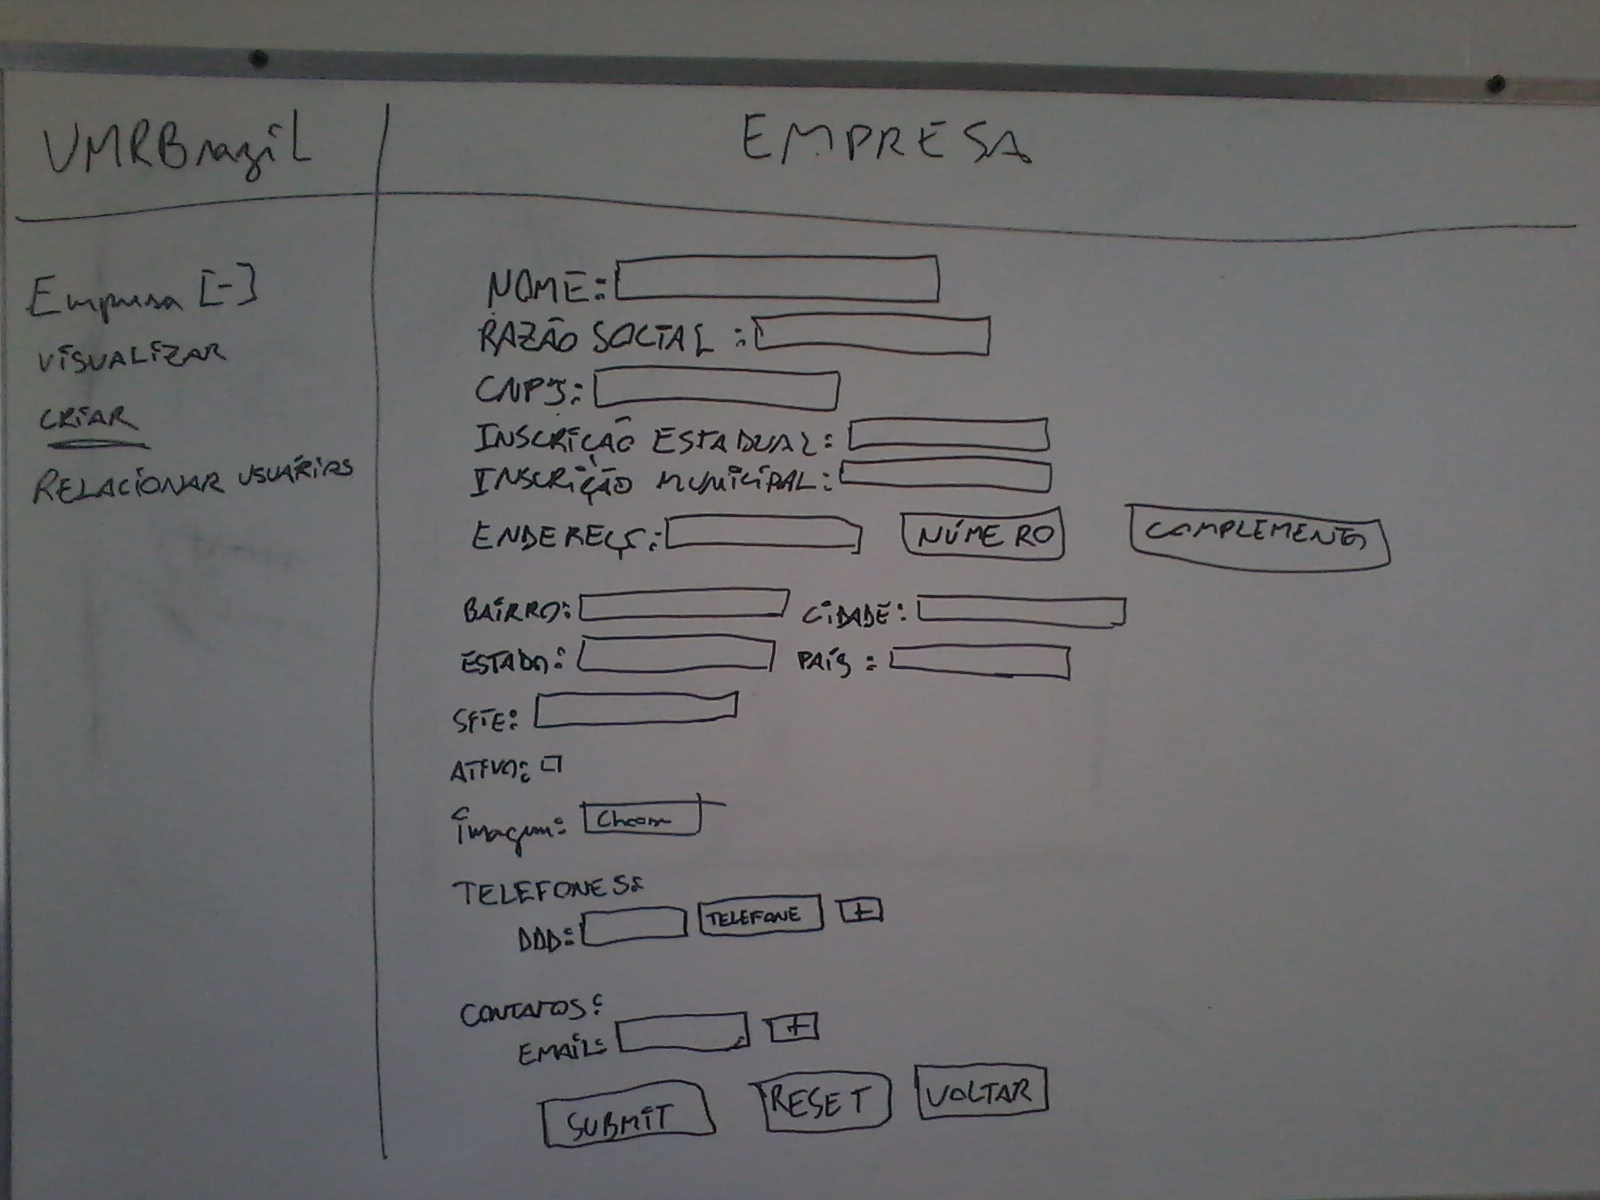 VMRBrazil
EMPRESA
Empresa [-]
VISUALIZAR
CRIAR
RELACIONAR USUÁRIOS
NOME:
RAZÃO SOCIAL :
CNPJ:
INSCRIÇÃO ESTADUAL:
INSCRIÇÃO MUNICIPAL:
ENDEREÇO: NÚMERO COMPLEMENTO
BAIRRO: CIDADE:
ESTADO: PAÍS :
SITE:
ATIVO:
imagem:
TELEFONES:
DDD: TELEFONE +
CONTATOS:
EMAIL: +
SUBMIT RESET VOLTAR